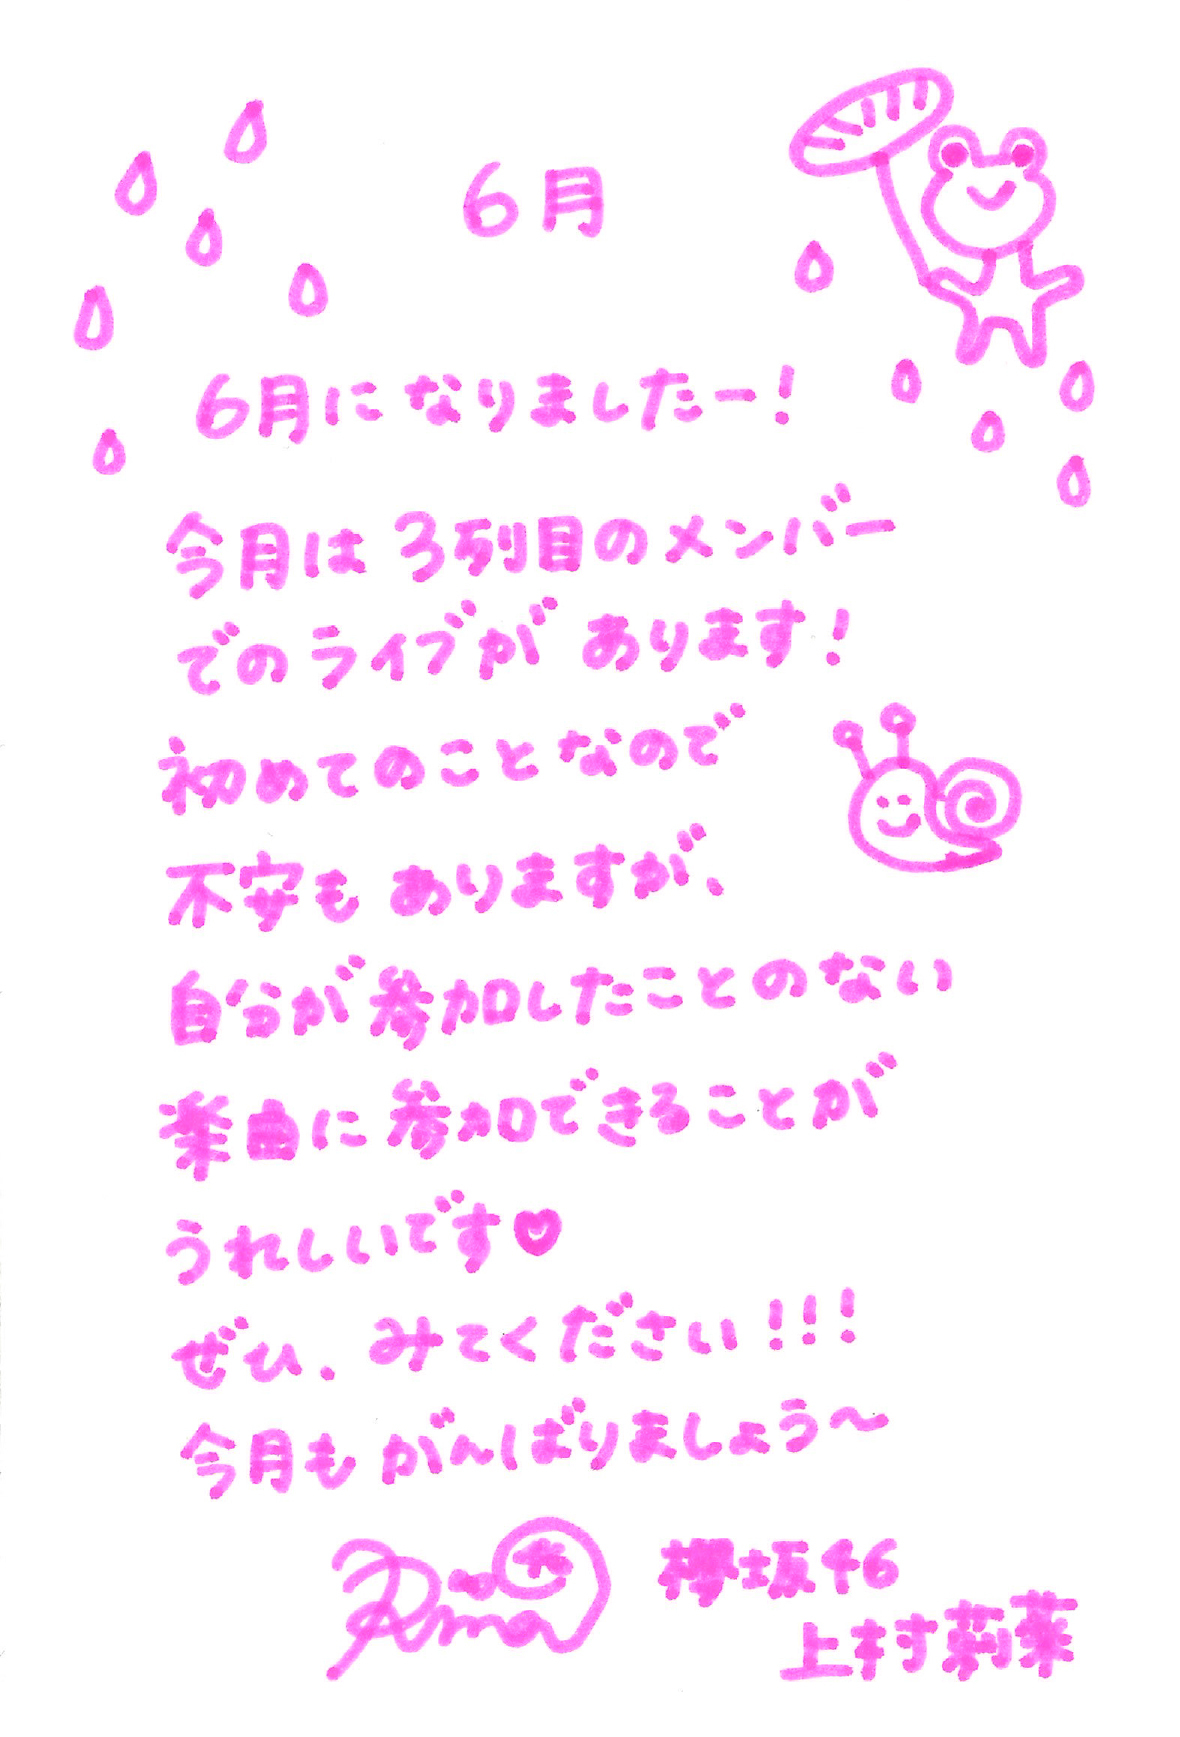 6月
6月になりましたー!
今月は3列目のメンバー
でのライブがあります!
初めてのことなので
不安もありますが、
自分が参加したことのない
楽曲に参加できることが
うれしいです♡
ぜひ、みてください!!!
今月もがんばりましょう〜
欅坂46
上村莉菜